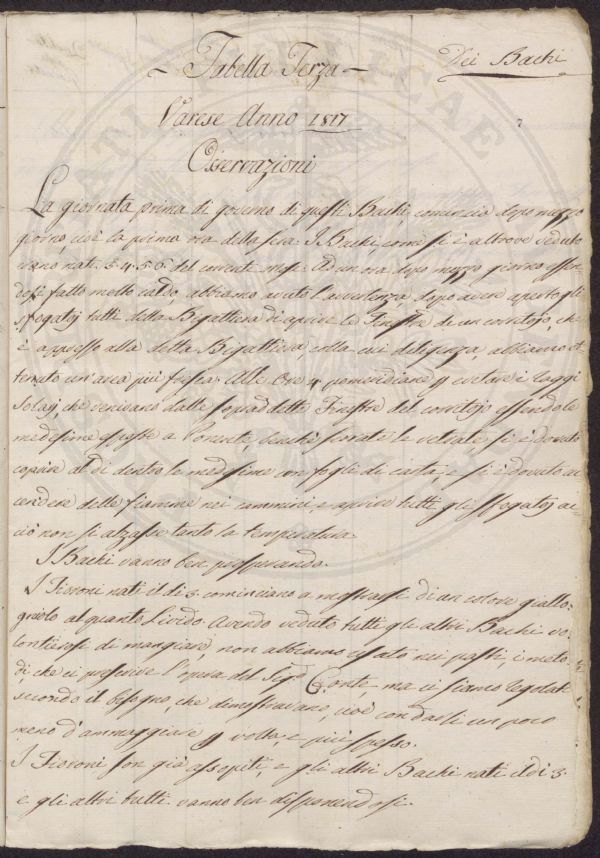 Dei Bachi
- Tabella Terza -
Varese Anno 1817
Osservazioni
La giornata prima di governo di questi Bachi, comincia dopo mezzo
giorno, cioè la prima ora della sera. I Bachi, come si è altrove veduto
sono nati 3. 4. 5. 6. del corrente mese. Ad un ora dopo mezzo giorno essen
dosi fatto molto caldo, abbiamo avuto l'avvertenza dopo avere aperto gli
sfogatoj tutti della Bigattiera di aprire le Finestre de un corritojo, che
è appresso alla detta Bigattiera, colla cui diligenza, abbiamo ot
tenuto un'area più fresca. Alle Ore 4 pomeridiane p evitare i raggi
solarj che venivano dalle sopradette Finestre del corritojo essendo le
medesime esposte a Ponente, benchè serrate le vetriate, si è dovuto
coprire al di dentro le medesime con fogli di carta, e si è dovuto ac
cendere delle fiamme nei cammini e aprire tutti gli sfogatoj ac-
ciò non si alzasse tanto la temperatura.
I Bachi vanno ben prosperando.
I Fioroni nati il dì 3 cominciano a mostrarsi di un colore giallo-
gnolo alquanto Livido. Avendo veduto tutti gli altri Bachi vo
lonterosi di mangiare, non abbiamo usato nei pasti, i meto
di che ci prescrive l'opera del Sigr Conte, ma ci siamo regolati
secondo il bisogno, che dimostravano, cioè con darli un poco
meno d'ammaggiare p volta, e più spesso.
I Fioroni son già assopiti, e gli altri Bachi nati il dì 3.
e gli altri tutti vanno ben disponendosi.